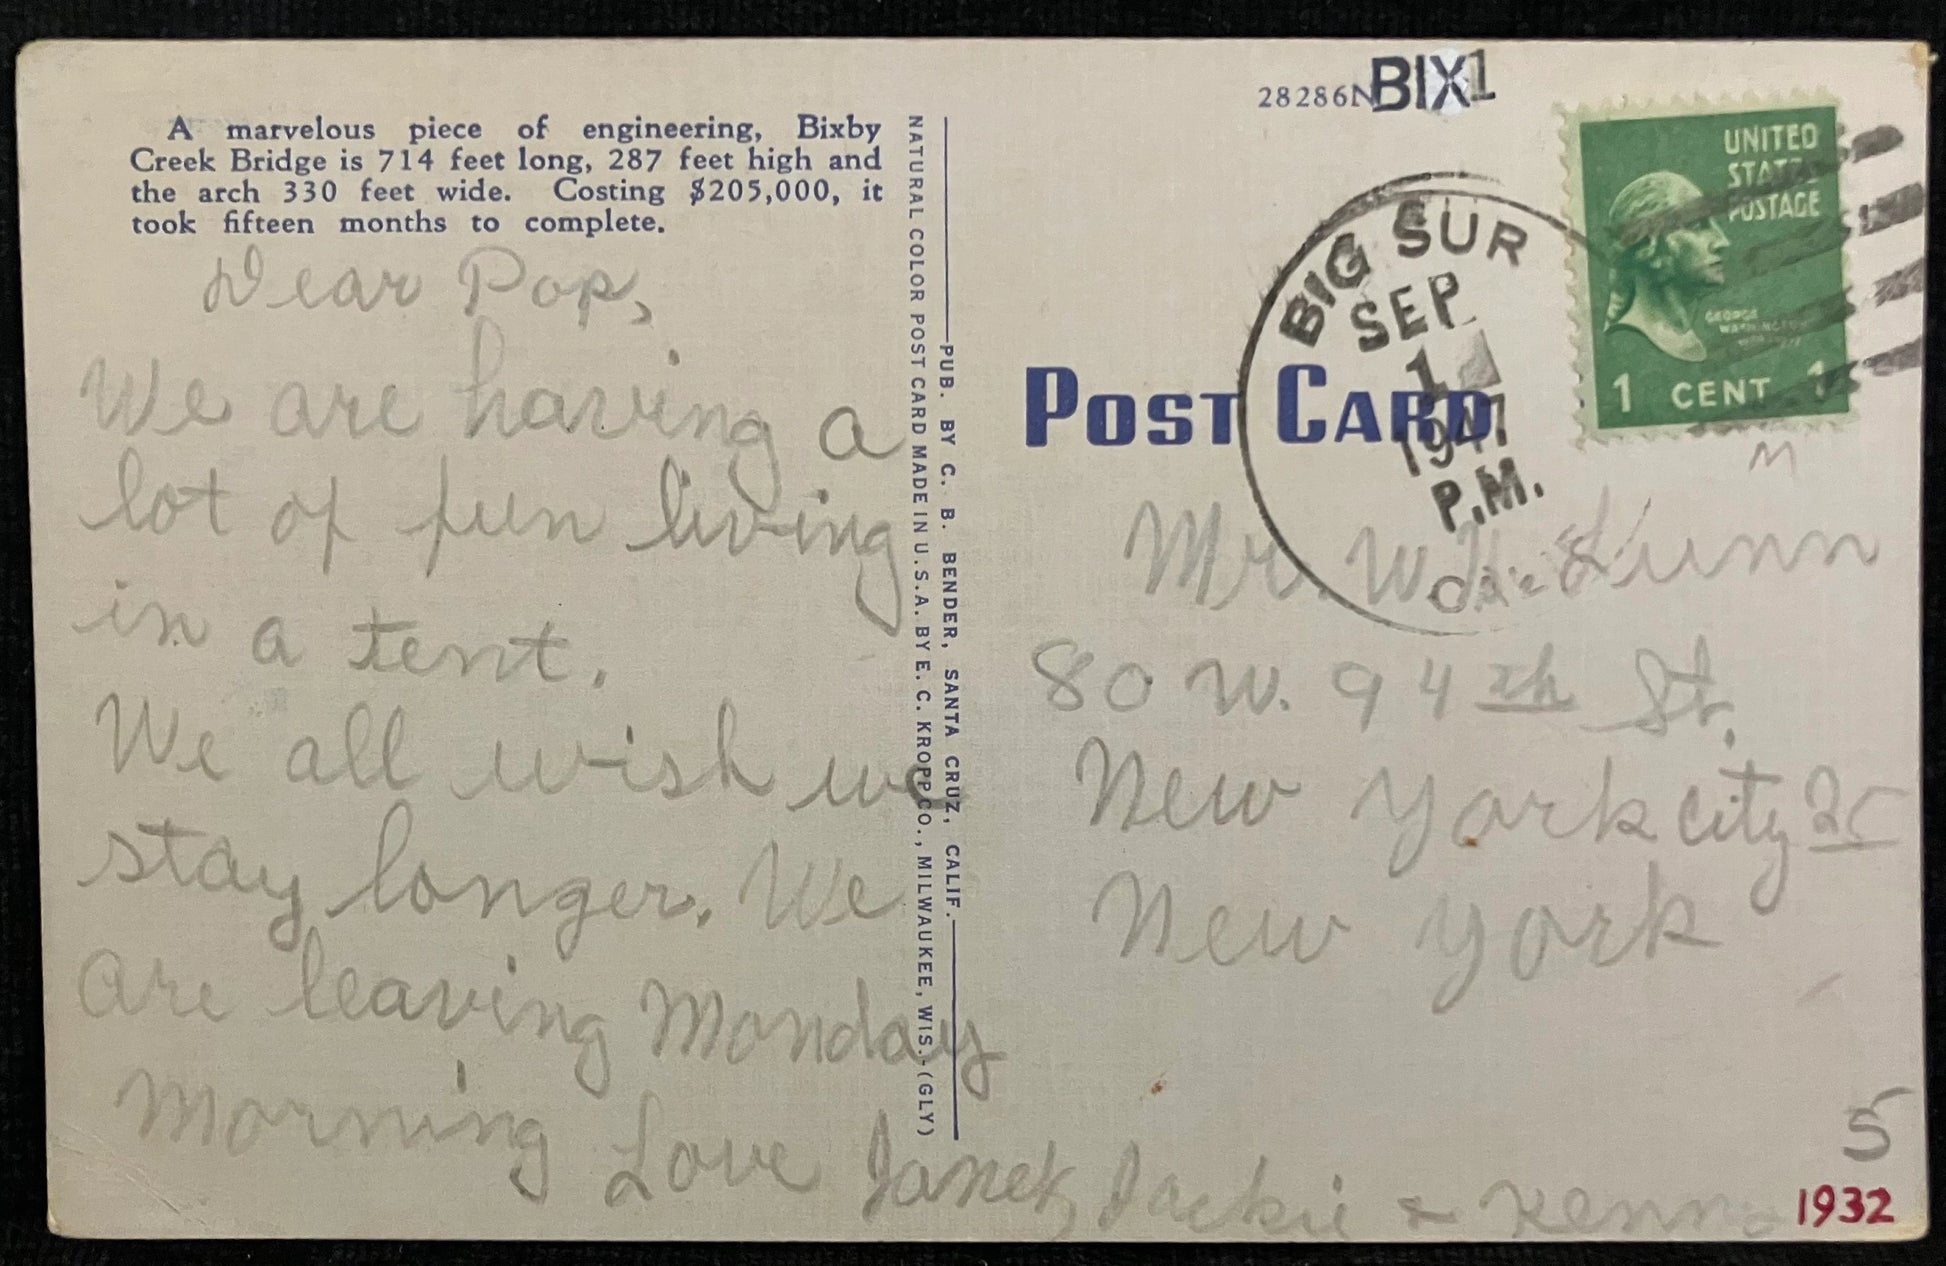 A marvelous piece of engineering, Bixby
Creek Bridge is 714 feet long, 287 feet high and
the arch 330 feet wide. Costing $205,000, it
took fifteen months to complete.
Dear Pop,
We are having a
lot of fun living
in a tent.
We all wish we
stay longer. We
are leaving Monday
morning Love Janet, Jackie &
NATURAL COLOR POST CARD MADE IN U.S.A. BY E. C. KROPP CO., MILWAUKEE, WIS.-(GLY)
PUB. BY C. B. BENDER, SANTA CRUZ, CALIF.
28286N
BIX1
POST CARD
BIG SUR
SEP
1
1947
P.M.
UNITED
STATES
POSTAGE
GEORGE
WASHINGTON
1 CENT 1
M
Mr. W.
80 W. 94th St.
New York City 25
New York
5
1932